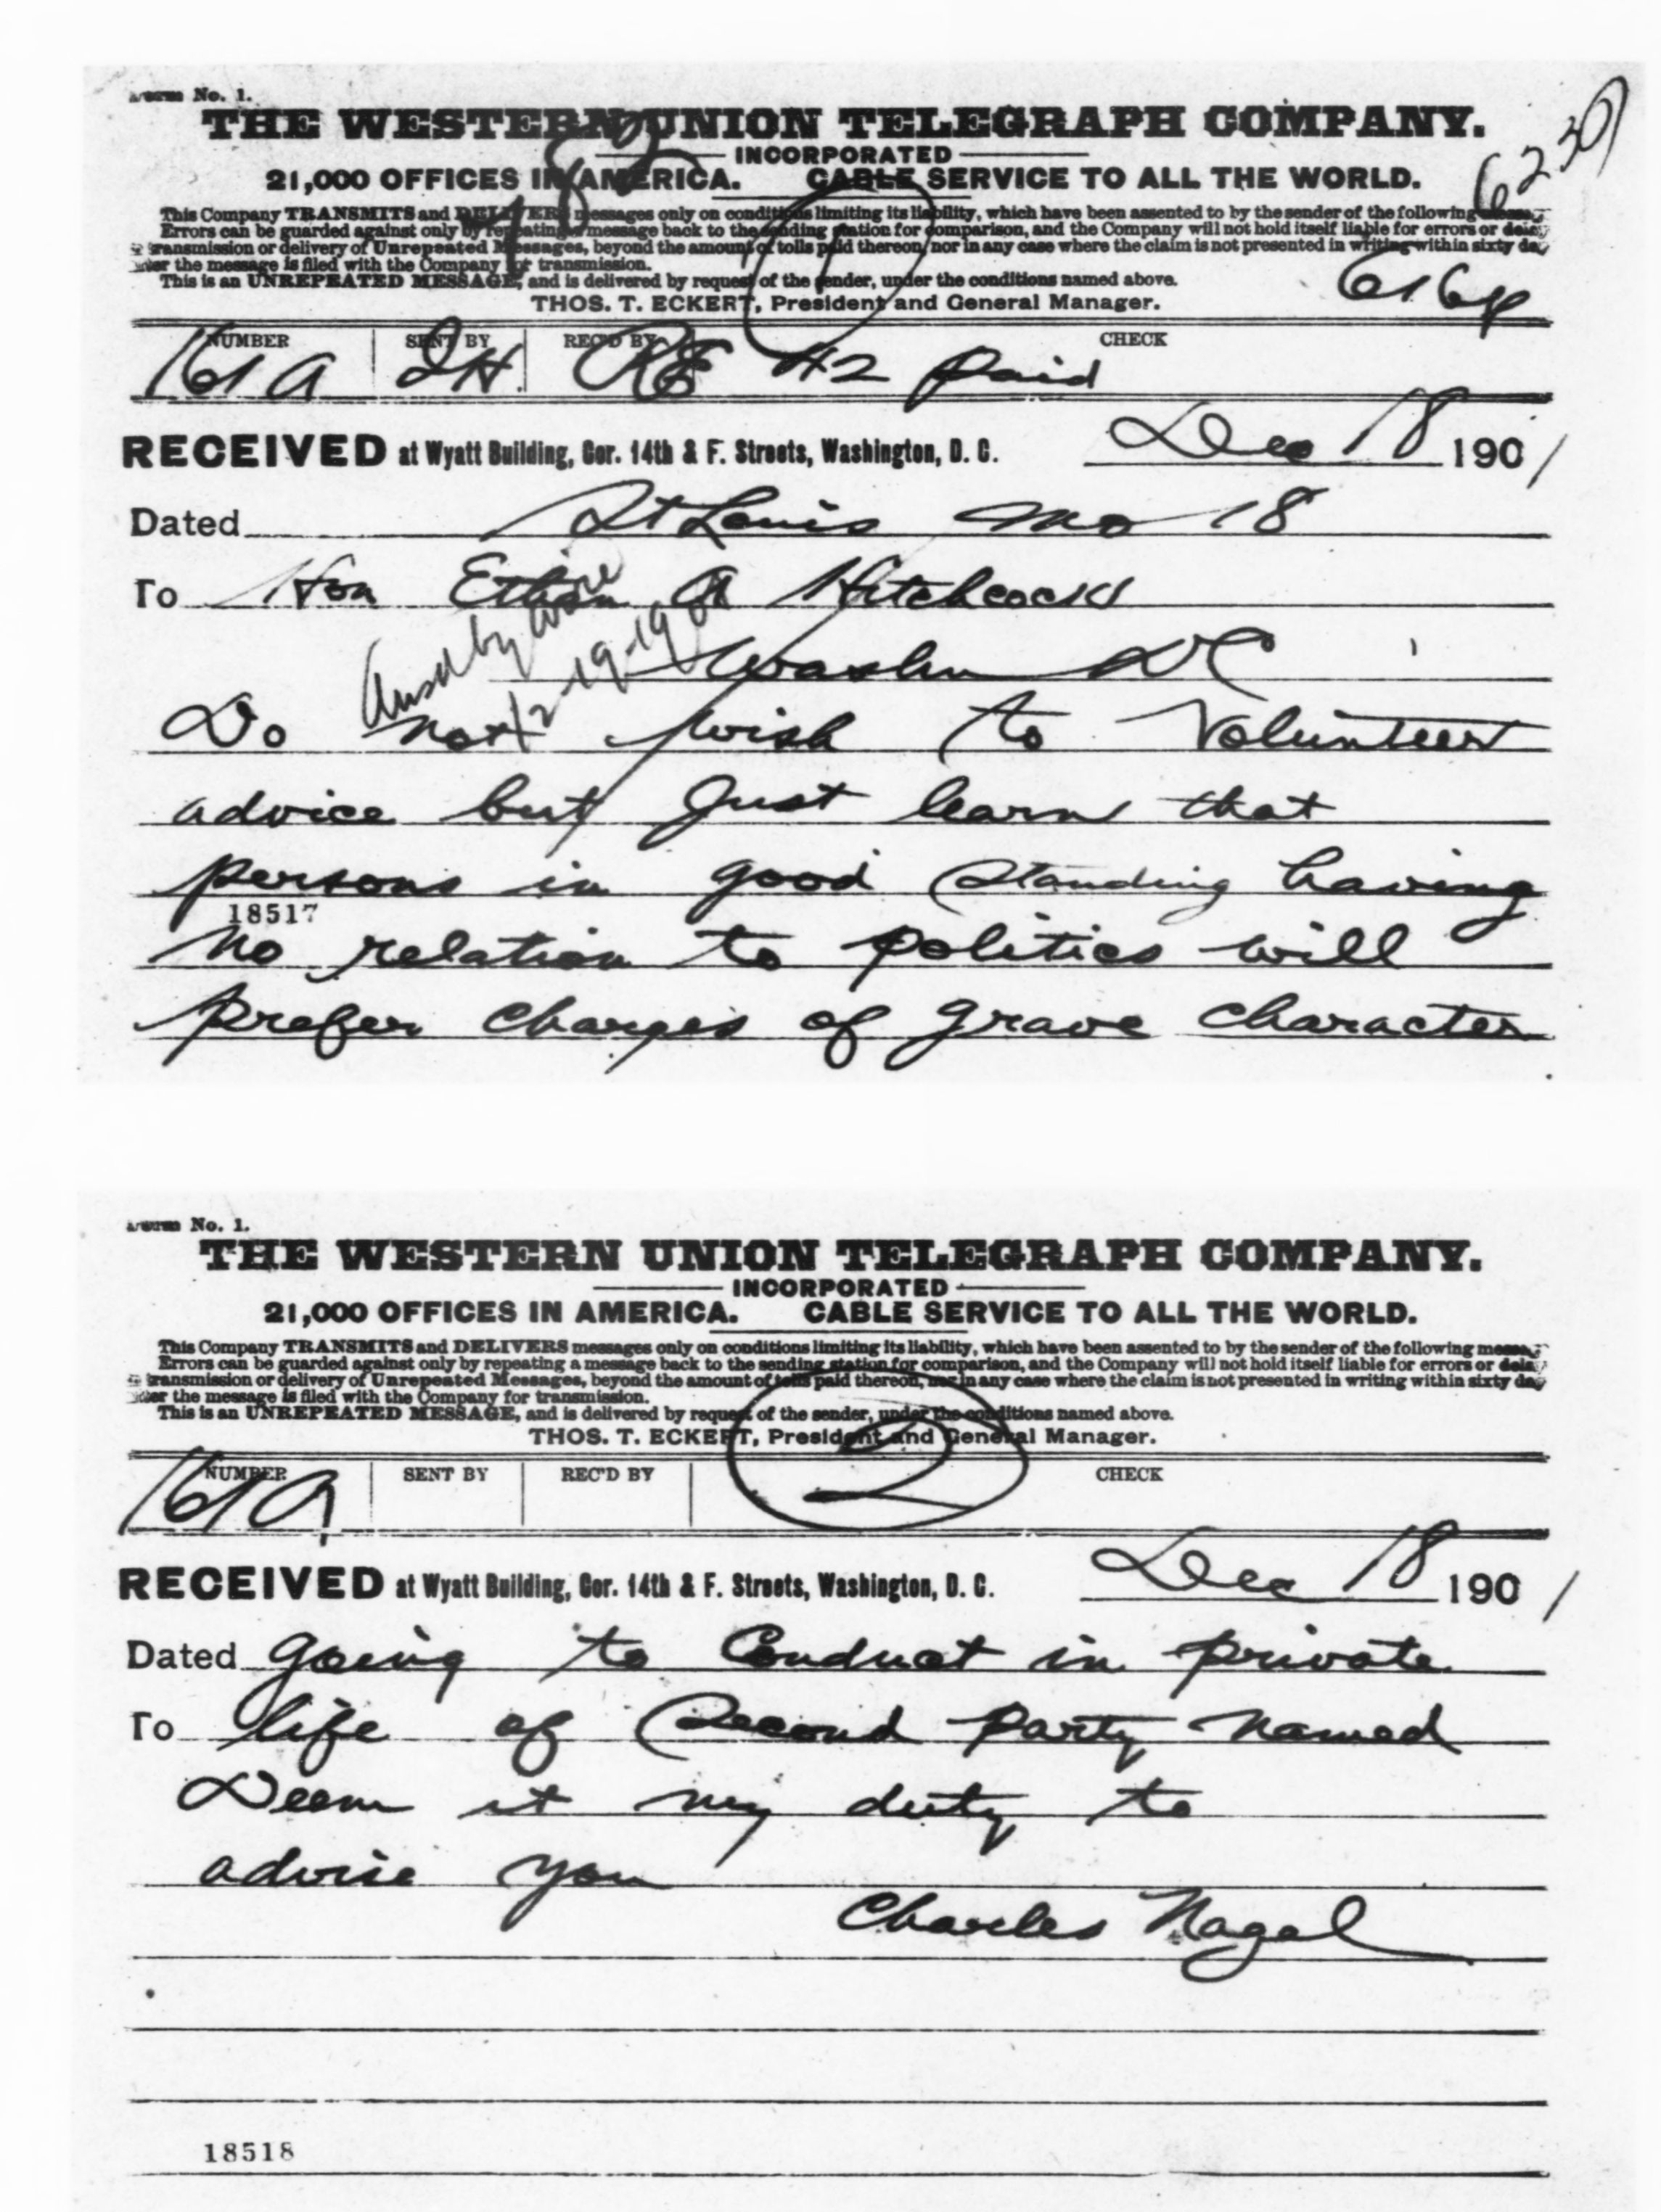 Form No. 1.
THE WESTERN UNION TELEGRAPH COMPANY.
INCORPORATED
21,000 OFFICES IN AMERICA. CABLE SERVICE TO ALL THE WORLD.
6230
This Company TRANSMITS and DELIVERS messages only on conditions limiting its liability, which have been assented to by the sender of the following
Errors can be guarded against only by repeating a message back to the sending station for comparison, and the Company will not hold itself liable for errors or
transmission or delivery of Unrepeated Messages, beyond the amount of tolls paid thereon, nor in any case where the claim is not presented in writing within sixty
the message is filed with the Company for transmission.
This is an UNREPEATED MESSAGE, and is delivered by request of the sender, under the conditions named above.
THOS. T. ECKERT, President and General Manager.
616p
NUMBER SENT BY REC'D BY CHECK
161 A 42 Paid
RECEIVED at Wyatt Building, Cor. 14th & F. Streets, Washington, D. C. Dec 18 1901
Dated St Louis Mo 18
To Hon Ethan A Hitchcock
Washn DC
Ansd by wire
12-19-1901
Do not wish to Volunteer
advice but Just learn that
persons in good Standing having
18517
no relation to politics will
prefer charges of grave character
Form No. 1.
THE WESTERN UNION TELEGRAPH COMPANY.
INCORPORATED
21,000 OFFICES IN AMERICA. CABLE SERVICE TO ALL THE WORLD.
This Company TRANSMITS and DELIVERS messages only on conditions limiting its liability, which have been assented to by the sender of the following
Errors can be guarded against only by repeating a message back to the sending station for comparison, and the Company will not hold itself liable for errors or
transmission or delivery of Unrepeated Messages, beyond the amount of tolls paid thereon, nor in any case where the claim is not presented in writing within sixty
the message is filed with the Company for transmission.
This is an UNREPEATED MESSAGE, and is delivered by request of the sender, under the conditions named above.
THOS. T. ECKERT, President and General Manager.
NUMBER SENT BY REC'D BY CHECK
161 A 2
RECEIVED at Wyatt Building, Cor. 14th & F. Streets, Washington, D. C. Dec 18 1901
Dated going to Conduct in private
To life of Second party named
Deem it my duty to
advise you
Charles Nagel
18518